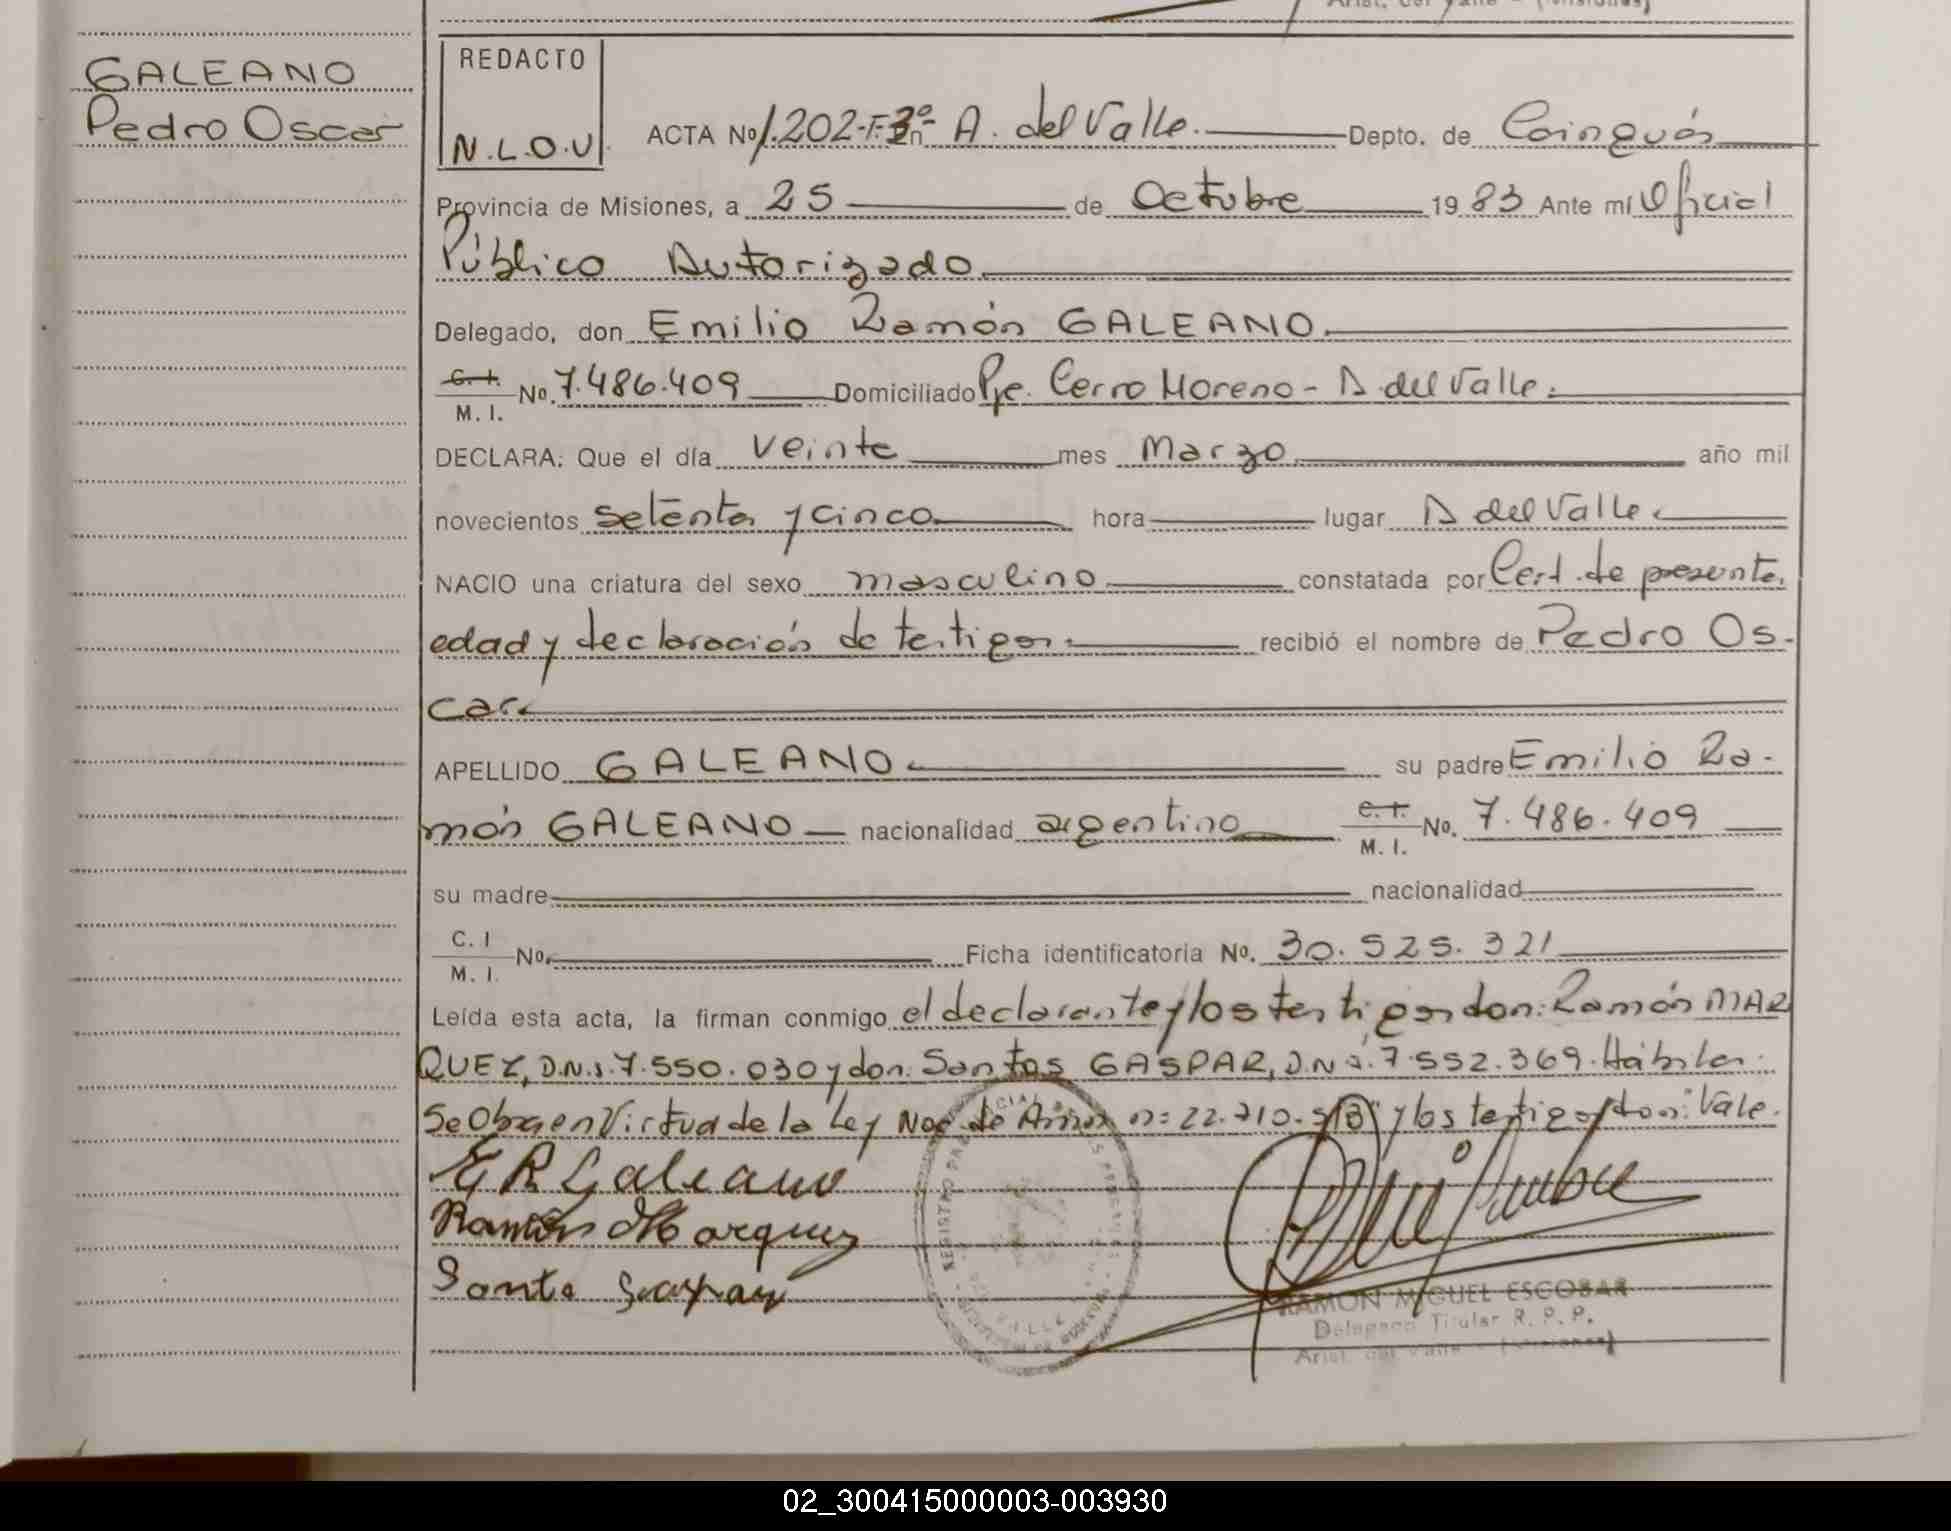 GALEANO
Pedro Oscar
REDACTO
N.L.O.V.
ACTA No 1.202-T.3º- En A. del Valle. Depto. de Cainguás
Provincia de Misiones, a 25 de Octubre 1983 Ante mí Oficial
Público Autorizado
Delegado, don Emilio Ramón GALEANO.
C. I. M. I. No. 7.486.409 Domiciliado Pje. Cerro Moreno - A. del Valle.
DECLARA: Que el día veinte mes Marzo año mil
novecientos setenta y cinco hora lugar A. del Valle.
NACIO una criatura del sexo masculino constatada por Cert. de presunta
edad y declaración de testigos. recibió el nombre de Pedro Os-
car.
APELLIDO GALEANO. su padre Emilio Ra-
món GALEANO nacionalidad argentino C. I. M. I. No. 7.486.409
su madre nacionalidad
C. I M. I. No. Ficha identificatoria No. 30.525.321
Leída esta acta, la firman conmigo el declarante y los testigos don: Ramón MAR
QUEZ, D.N.I. 7.550.030 y don: Santos GASPAR, D.N.I. 7.552.369. Hábiles.
Se Obra en Virtud de la Ley Nac. de n: 22. y los testigos don: Vale.
E R Galeano
Ramón Marquez
Santo Gaspar
RAMON MIGUEL ESCOBAR
Delegado Titular R. P. P.
Arist. del Valle - (Misiones)
02_300415000003-003930